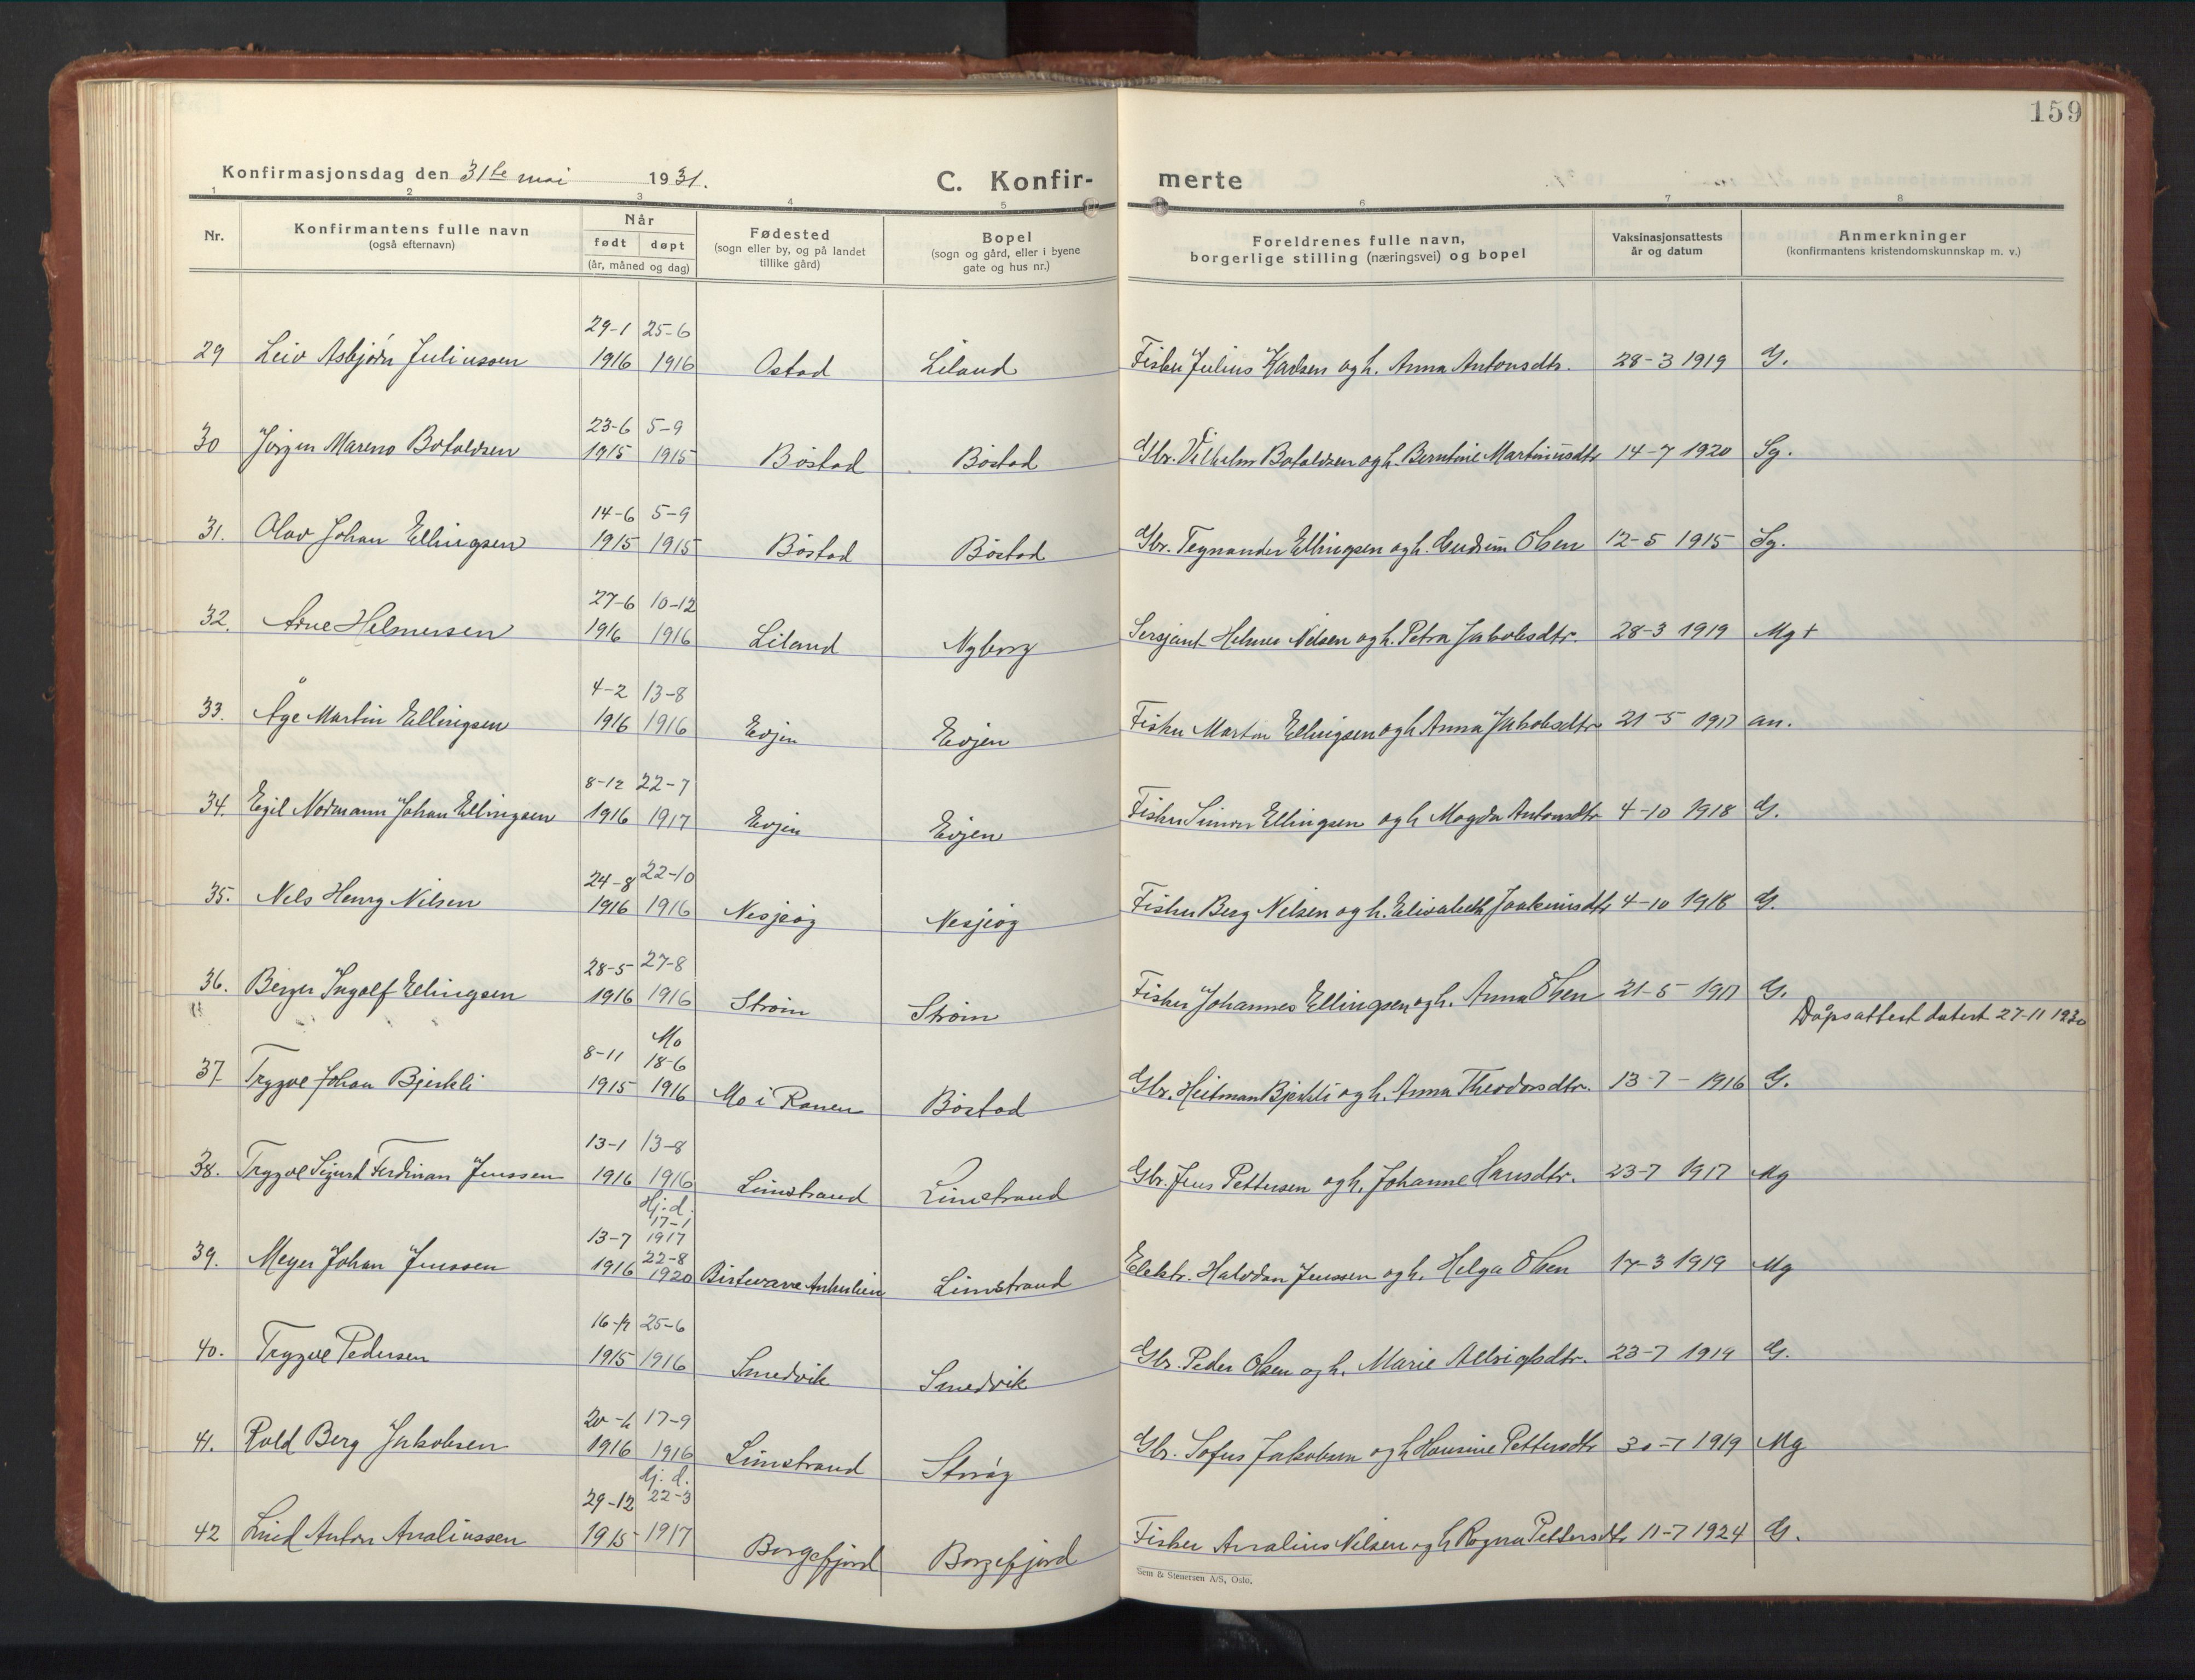 159
Konfirmasjonsdag den 31te mai 1931.
C. Konfir- merte
1 2 3 4 5 6 7 8
Nr.
Konfirmantens fulle navn
(også efternavn)
Når
født døpt
(år, måned og dag)
Fødested
(sogn eller by, og på landet
tillike gård)
Bopel
(sogn og gård, eller i byene
gate og hus nr.)
Foreldrenes fulle navn,
borgerlige stilling (næringsvei) og bopel
Vaksinasjonsattests
år og datum
Anmerkninger
(konfirmantens kristendomskunnskap m. v.)
29-1 25-6
29 Leiv Asbjørn Juliussen 1916 1916 Ostad Liland Fisker Julius Karlsen og h. Anna Antonsdtr. 28-3 1919 G.
23-6 5-9
30 Jørgen Mareno Botolvsen 1915 1915 Bøstad Bøstad Gbr. Vilhelm Botolvsen og h. Berntine Martinusdtr 14-7 1920 Sg.
14-6 5-9
31. Olav Johan Ellingsen 1915 1915 Bøstad Bøstad Gbr. Tegnander Ellingsen og h. Gudrun Olsen 12-5 1915 Sg.
27-6 10-12
32. Arne Helmersen 1916 1916 Liland Nyborg Sersjant Helmer Nilsen og h. Petra Jakobsdtr. 28-3 1919 Mg+
4-2 13-8
33. Åge Martin Ellingsen 1916 1916 Evjen Evjen Fisker Martin Ellingsen og h Anna Jakobsdtr 21-5 1917 an.
8-12 22-7
34. Egil Normann Johan Ellingsen 1916 1917 Evjen Evjen Fisker Simon Ellingsen og h Magda Antonsdtr 4-10 1918 G.
24-8 22-10
35. Nels Henry Nilsen 1916 1916 Nesjeøy Nesjeøy Fisker Berg Nilsen og h. Elisabeth Joakimsdtr 4-10 1918 G.
28-5 27-8
36. Berger Ingolf Ellingsen 1916 1916 Strøm Strøm Fisker Johannes Ellingsen og h. Anna Olsen 21-5 1917 G.
Dåpsattest datert 27-11 1930
Mo
8-11 18-6
37. Trygve Johan Bjerkli 1915 1916 Mo i Ranen Bøstad Gbr. Heitman Bjerkli og h. Anna Theodorsdtr. 13-7-1916 G.
13-1 13-8
38. Trygve Sigurd Ferdinan Jenssen 1916 1916 Limstrand Limstrand Gbr. Jens Pettersen og h. Johanne Hansdtr. 23-7 1917 Mg
Hj. d.
17-1
13-7 1917
22-8
39. Meyer Johan Jenssen 1916 1920 Limstrand Elektr. Halvdan Jenssen og h. Helga Olsen 17-3 1919 Mg
25-6
40. Trygve Pedersen 1915 1916 Smedvik Smedvik Gbr. Peder Olsen og h. Marie 23-7 1919 G.
17-9
41. Rold Berg Jakobsen 1916 1916 Limstrand Storøy Gbr. Sofus Jakobsen og h Hansine Pettersdtr 30-7 1919 Mg
Hj. d.
29-12 22-3
42 Anton Analiussen 1915 1917 Borgefjord Borgefjord Fisker Analius Nilsen og h Ragna Pettersdtr 11-7 1924 G.
Sem & Stenersen A/S, Oslo.